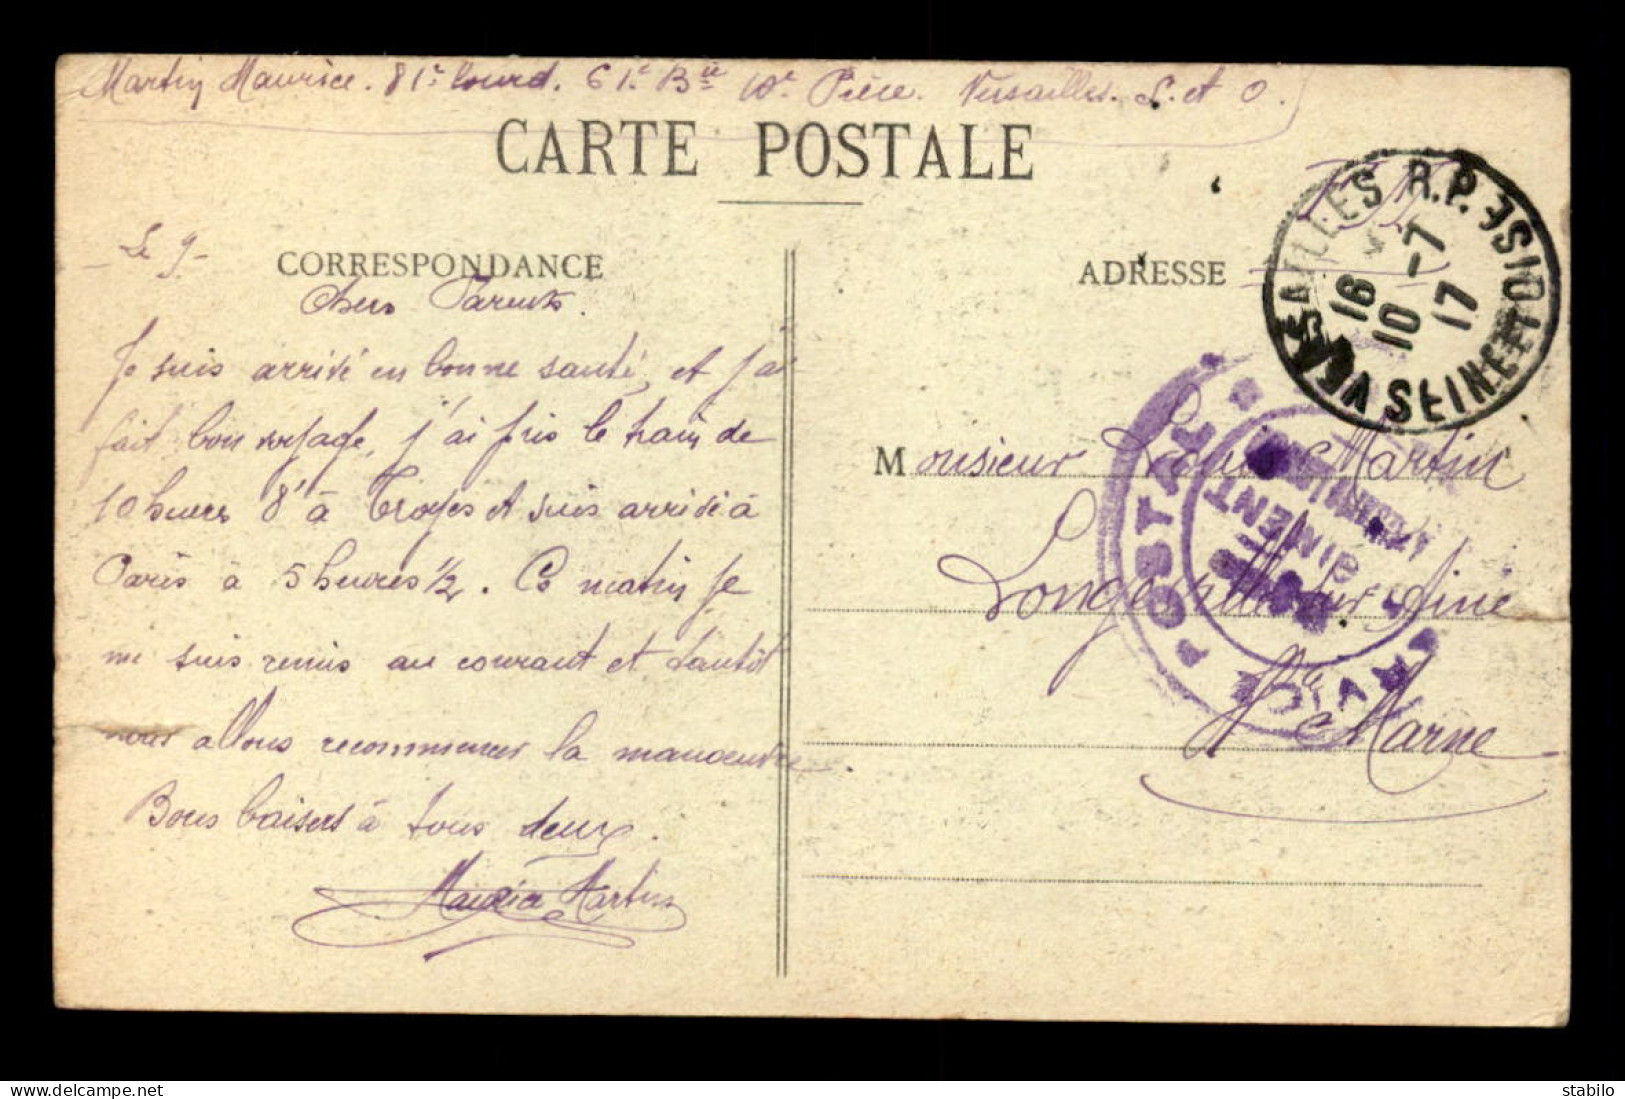 Martin Maurice. 81e lourd. 61e Bie 10e Pièce. Versailles. S. et O.
CARTE POSTALE
F M
VERSAILLES R.P.
16
10 -7
17
SEINE ET OISE
Le 9
CORRESPONDANCE
Chers Parents.
Je suis arrivé en bonne santé, et j'ai
fait bon voyage, j'ai pris le train de
10 heures 8' à Troyes et suis arrivé à
Paris à 5 heures 1/2. Ce matin je
me suis remis au courant et tantôt
nous allons recommencer la manoeuvre
Bons baisers à tous deux.
Maurice Martin
ADRESSE
Monsieur Louis Martin
Longeville sur Aine
Hte Marne
POSTAL
stabilo